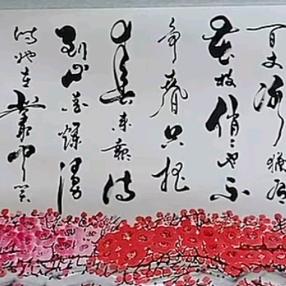 百丈冰猶有
花枝俏俏也不
争春只把
春来報待
到山花爛漫
時她在叢中笑